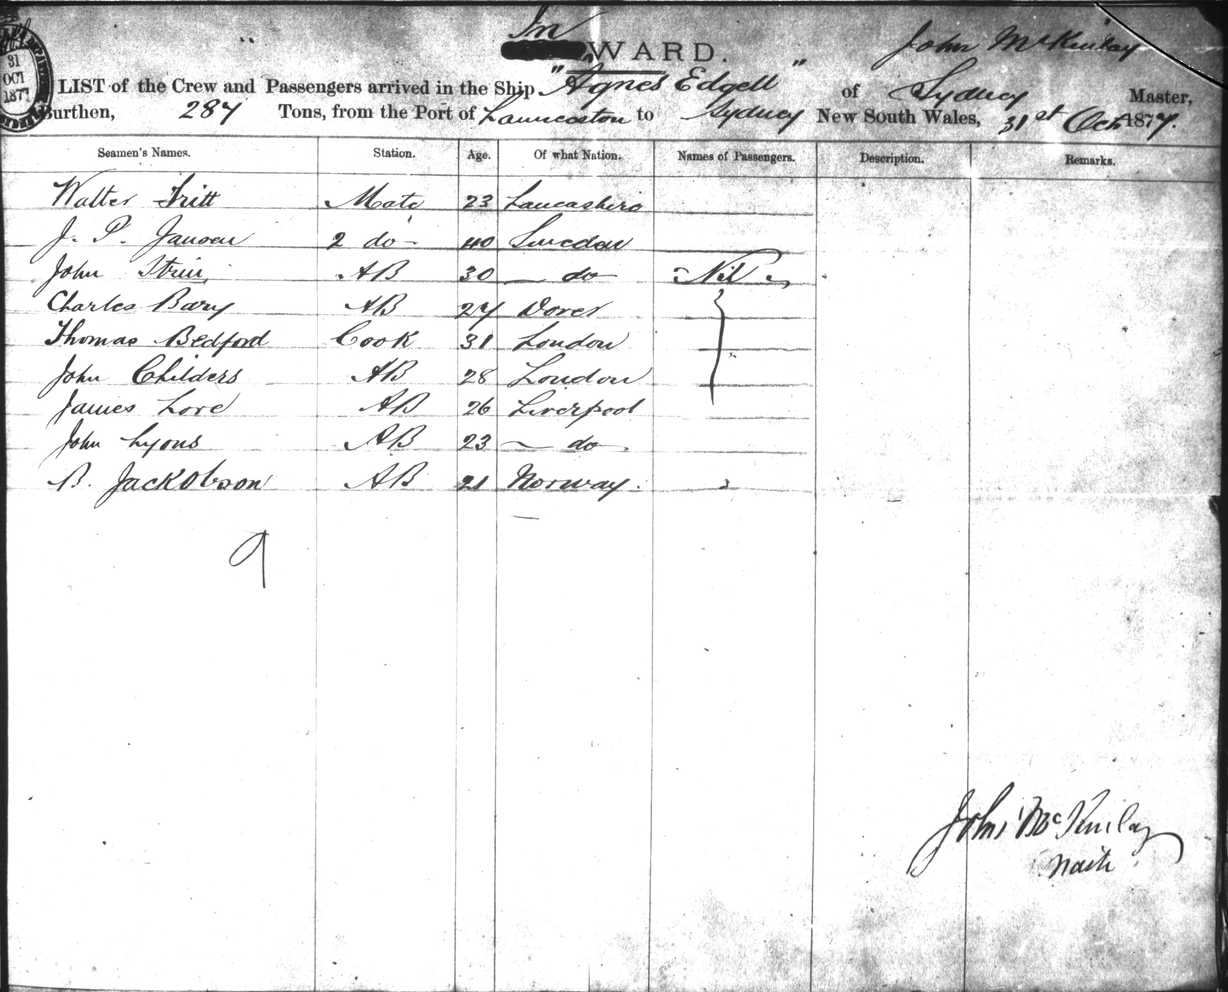 In
WARD.
John McKinlay
31
OCT
1877
LIST of the Crew and Passengers arrived in the Ship "Agnes Edgell" of Sydney Master,
Burthen, 287 Tons, from the Port of Launceston to Sydney New South Wales, 31st Oct 1877.
Seamen's Names. Station. Age. Of what Nation. Names of Passengers. Description. Remarks.
Walter Fritt Mate 23 Lancashire
J. P. Jansen 2 do 40 Sweden
John AB 30 do Nil
Charles Bary AB 27 Dover
Thomas Bedford Cook 31 London
John Childers AB 28 London
James Love AB 26 Liverpool
John Lyons AB 23 do
B. Jackobson AB 21 Norway.
9
John McKinlay